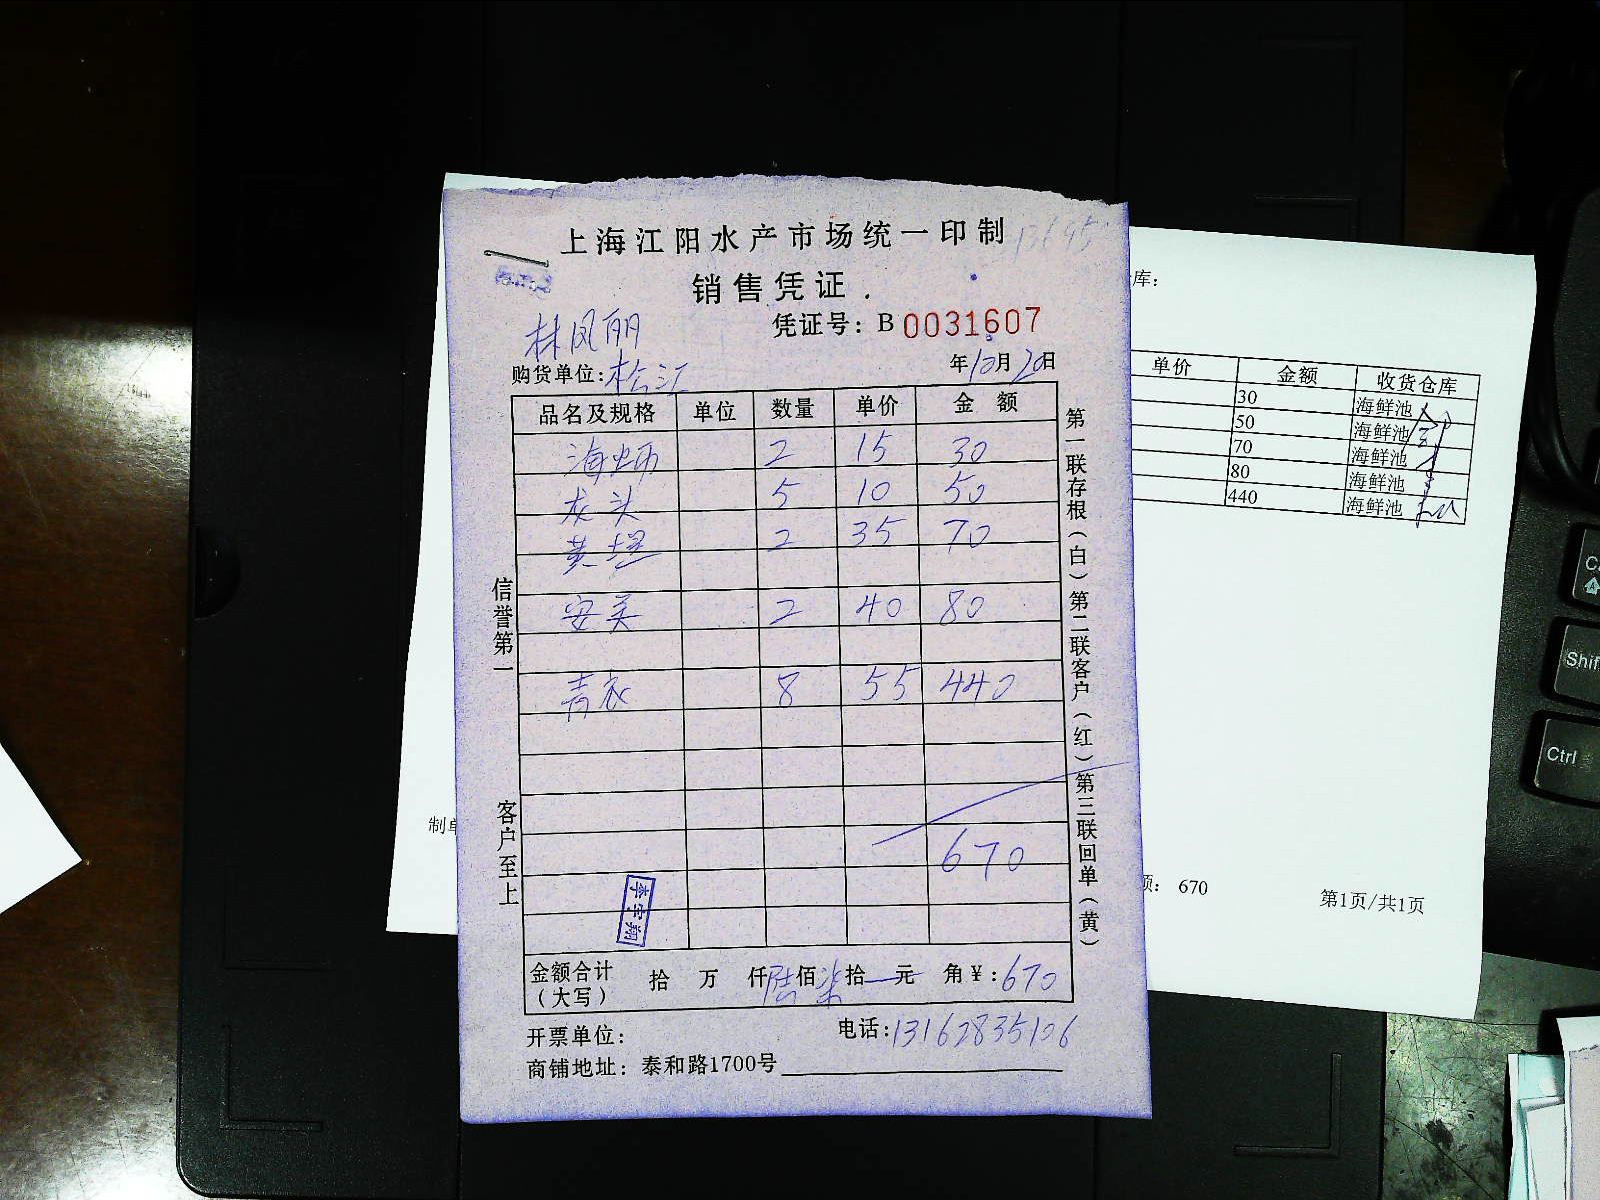 上海江阳水产市场统一印制
销售凭证
林凤丽
凭证号：B 0031607
购货单位：松江
年10月20日
品名及规格 单位 数量 单价 金额
海蛎 2 15 30
龙头 5 10 50
黄 2 35 70
安 2 40 80
青衣 8 55 440
670
李宇翔
金额合计（大写） 拾 万 仟陆佰柒拾 元 角￥：670
开票单位：
电话：13162835106
商铺地址：泰和路1700号
信誉第一
客户至上
第一联存根（白）第二联客户（红）第三联回单（黄）
库：
单价 金额 收货仓库
30 海鲜池
50 海鲜池
70 海鲜池
80 海鲜池
440 海鲜池
制单
额： 670
第1页/共1页
Shif
Ctrl